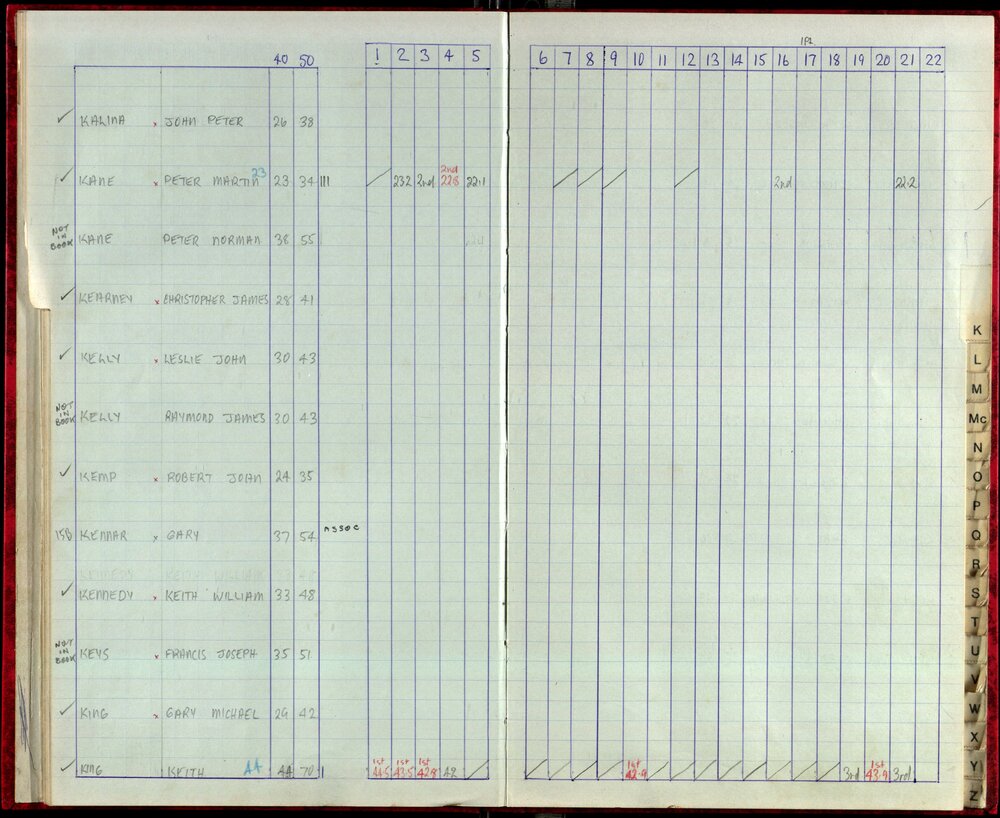 1P2
40 50 1 2 3 4 5 6 7 8 9 10 11 12 13 14 15 16 17 18 19 20 21 22
✓ KALINA x JOHN PETER 26 38
✓ KANE x PETER MARTIN 23 23 34 III / 232 2nd 2nd 228 22.1 / / / / 2nd 22.2
NOT IN BOOK KANE PETER NORMAN 38 55
✓ KEARNEY x CHRISTOPHER JAMES 28 41
✓ KELLY x LESLIE JOHN 30 43
NOT IN BOOK KELLY RAYMOND JAMES 30 43
✓ KEMP x ROBERT JOHN 24 35
15B KENNAR x GARY 37 54 ASSOC
KENNEDY KEITH WILLIAM
✓ KENNEDY x KEITH WILLIAM 33 48
NOT IN BOOK KEYS x FRANCIS JOSEPH 35 51
✓ KING x GARY MICHAEL 29 42
✓ KING KEITH 44 44 70 I 1st 44.5 1st 43.5 1st 42.8 42 / / / / / 1st 42.9 / / / / / / / / 3rd 1st 43.9 3rd
K
L
M
Mc
N
O
P
Q
R
S
T
U
V
W
X
Y
Z